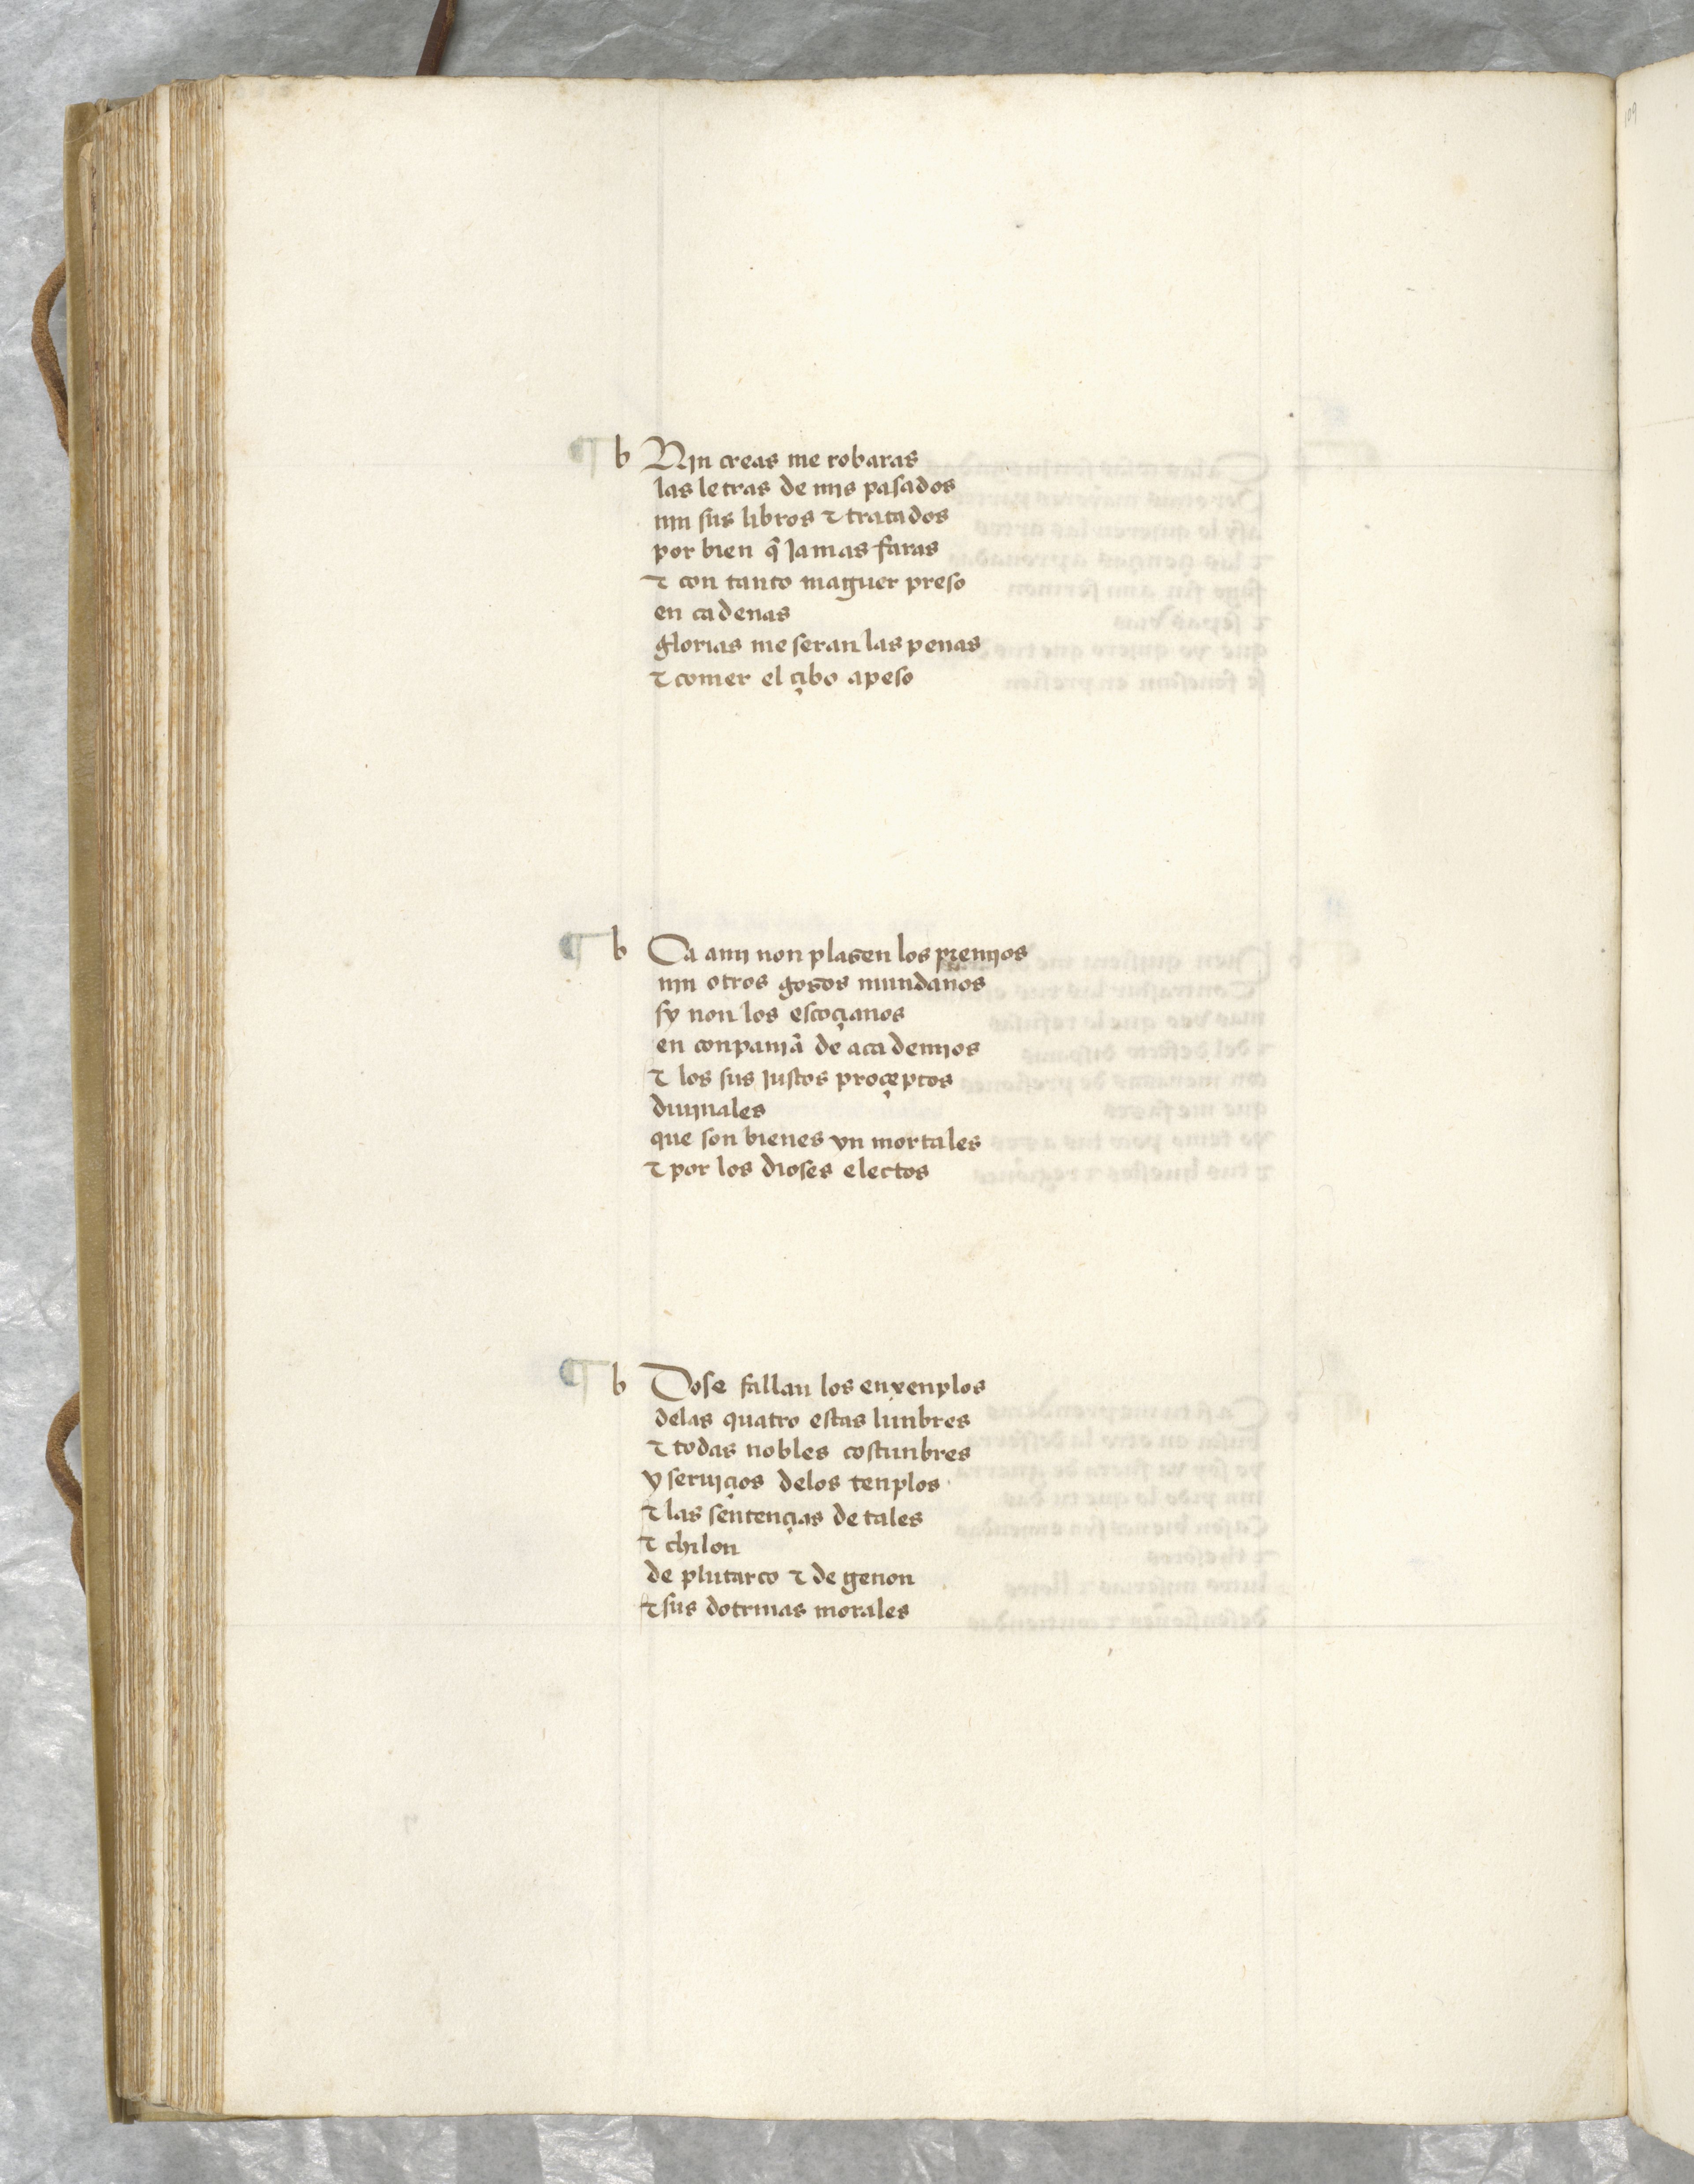 109
¶ b Njn creas me robaras
las letras de mjs pasados
njn sus libros ⁊ tratados
por bien q̃ Jamas faras
⁊ con tanto maguer preso
en cadenas
glorias me seran las penas
⁊ comer el çibo apeso
¶ b Ca amj non plazen los premjos
njn otros gozos mundanos
sy non los estoçianos
en conpanjã de academjos
⁊ los sus Justos proçeptos
diujnales
que son bienes yn mortales
⁊ por los dioses electos
¶ b Dose fallan los enxenplos
delas quatro estas lunbres
⁊ todas nobles costunbres
y serujçios delos tenplos
⁊ las sentençias de tales
⁊ chilon
de plutarco ⁊ de genon
⁊ sus dotrinas morales